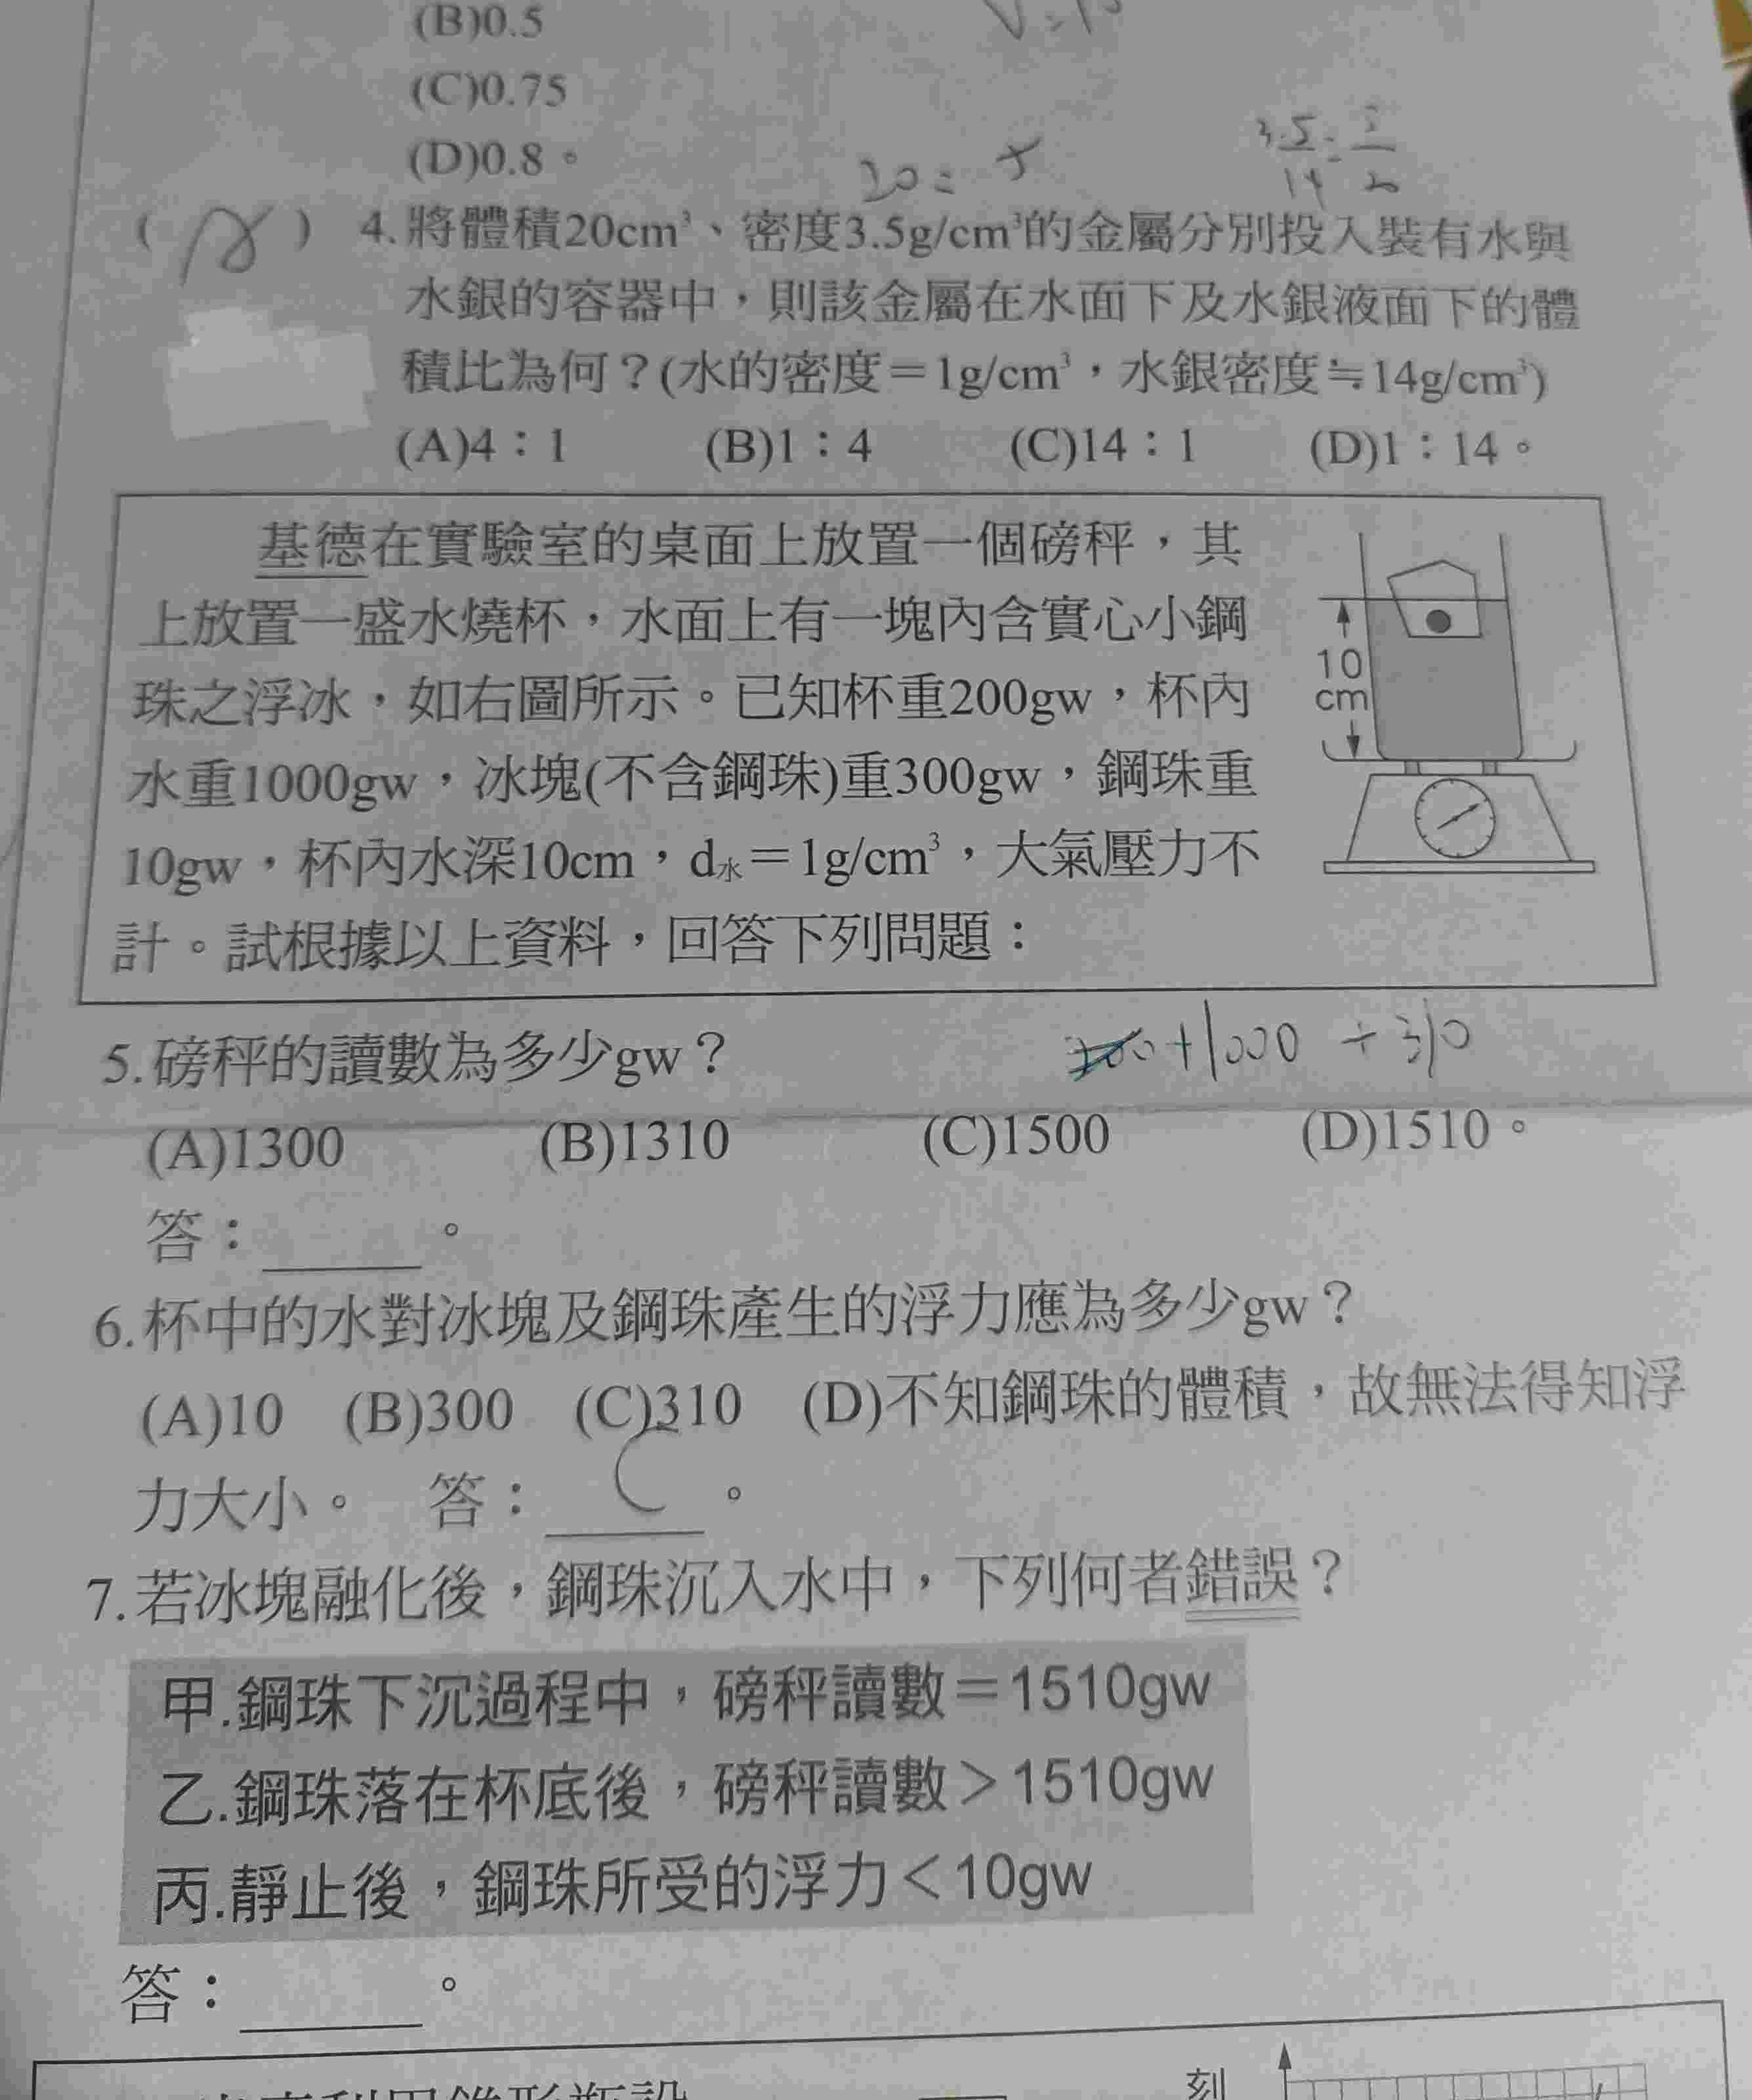 (B)0.5
(C)0.75
(D)0.8。
4.將體積20cm³、密度3.5g/cm³的金屬分別投入裝有水與
水銀的容器中，則該金屬在水面下及水銀液面下的體
積比為何？(水的密度＝1g/cm³，水銀密度≒14g/cm³)
(A)4：1 (B)1：4 (C)14：1 (D)1：14。
基德在實驗室的桌面上放置一個磅秤，其
上放置一盛水燒杯，水面上有一塊內含實心小鋼
珠之浮冰，如右圖所示。已知杯重200gw，杯內
水重1000gw，冰塊(不含鋼珠)重300gw，鋼珠重
10gw，杯內水深10cm，d水＝1g/cm³，大氣壓力不
計。試根據以上資料，回答下列問題：
10
cm
5.磅秤的讀數為多少gw？
+1000 + 310
(A)1300 (B)1310 (C)1500 (D)1510。
答：＿＿＿。
6.杯中的水對冰塊及鋼珠產生的浮力應為多少gw？
(A)10 (B)300 (C)310 (D)不知鋼珠的體積，故無法得知浮
力大小。 答：C。
7.若冰塊融化後，鋼珠沉入水中，下列何者錯誤？
甲.鋼珠下沉過程中，磅秤讀數＝1510gw
乙.鋼珠落在杯底後，磅秤讀數＞1510gw
丙.靜止後，鋼珠所受的浮力＜10gw
答：＿＿＿。
刻